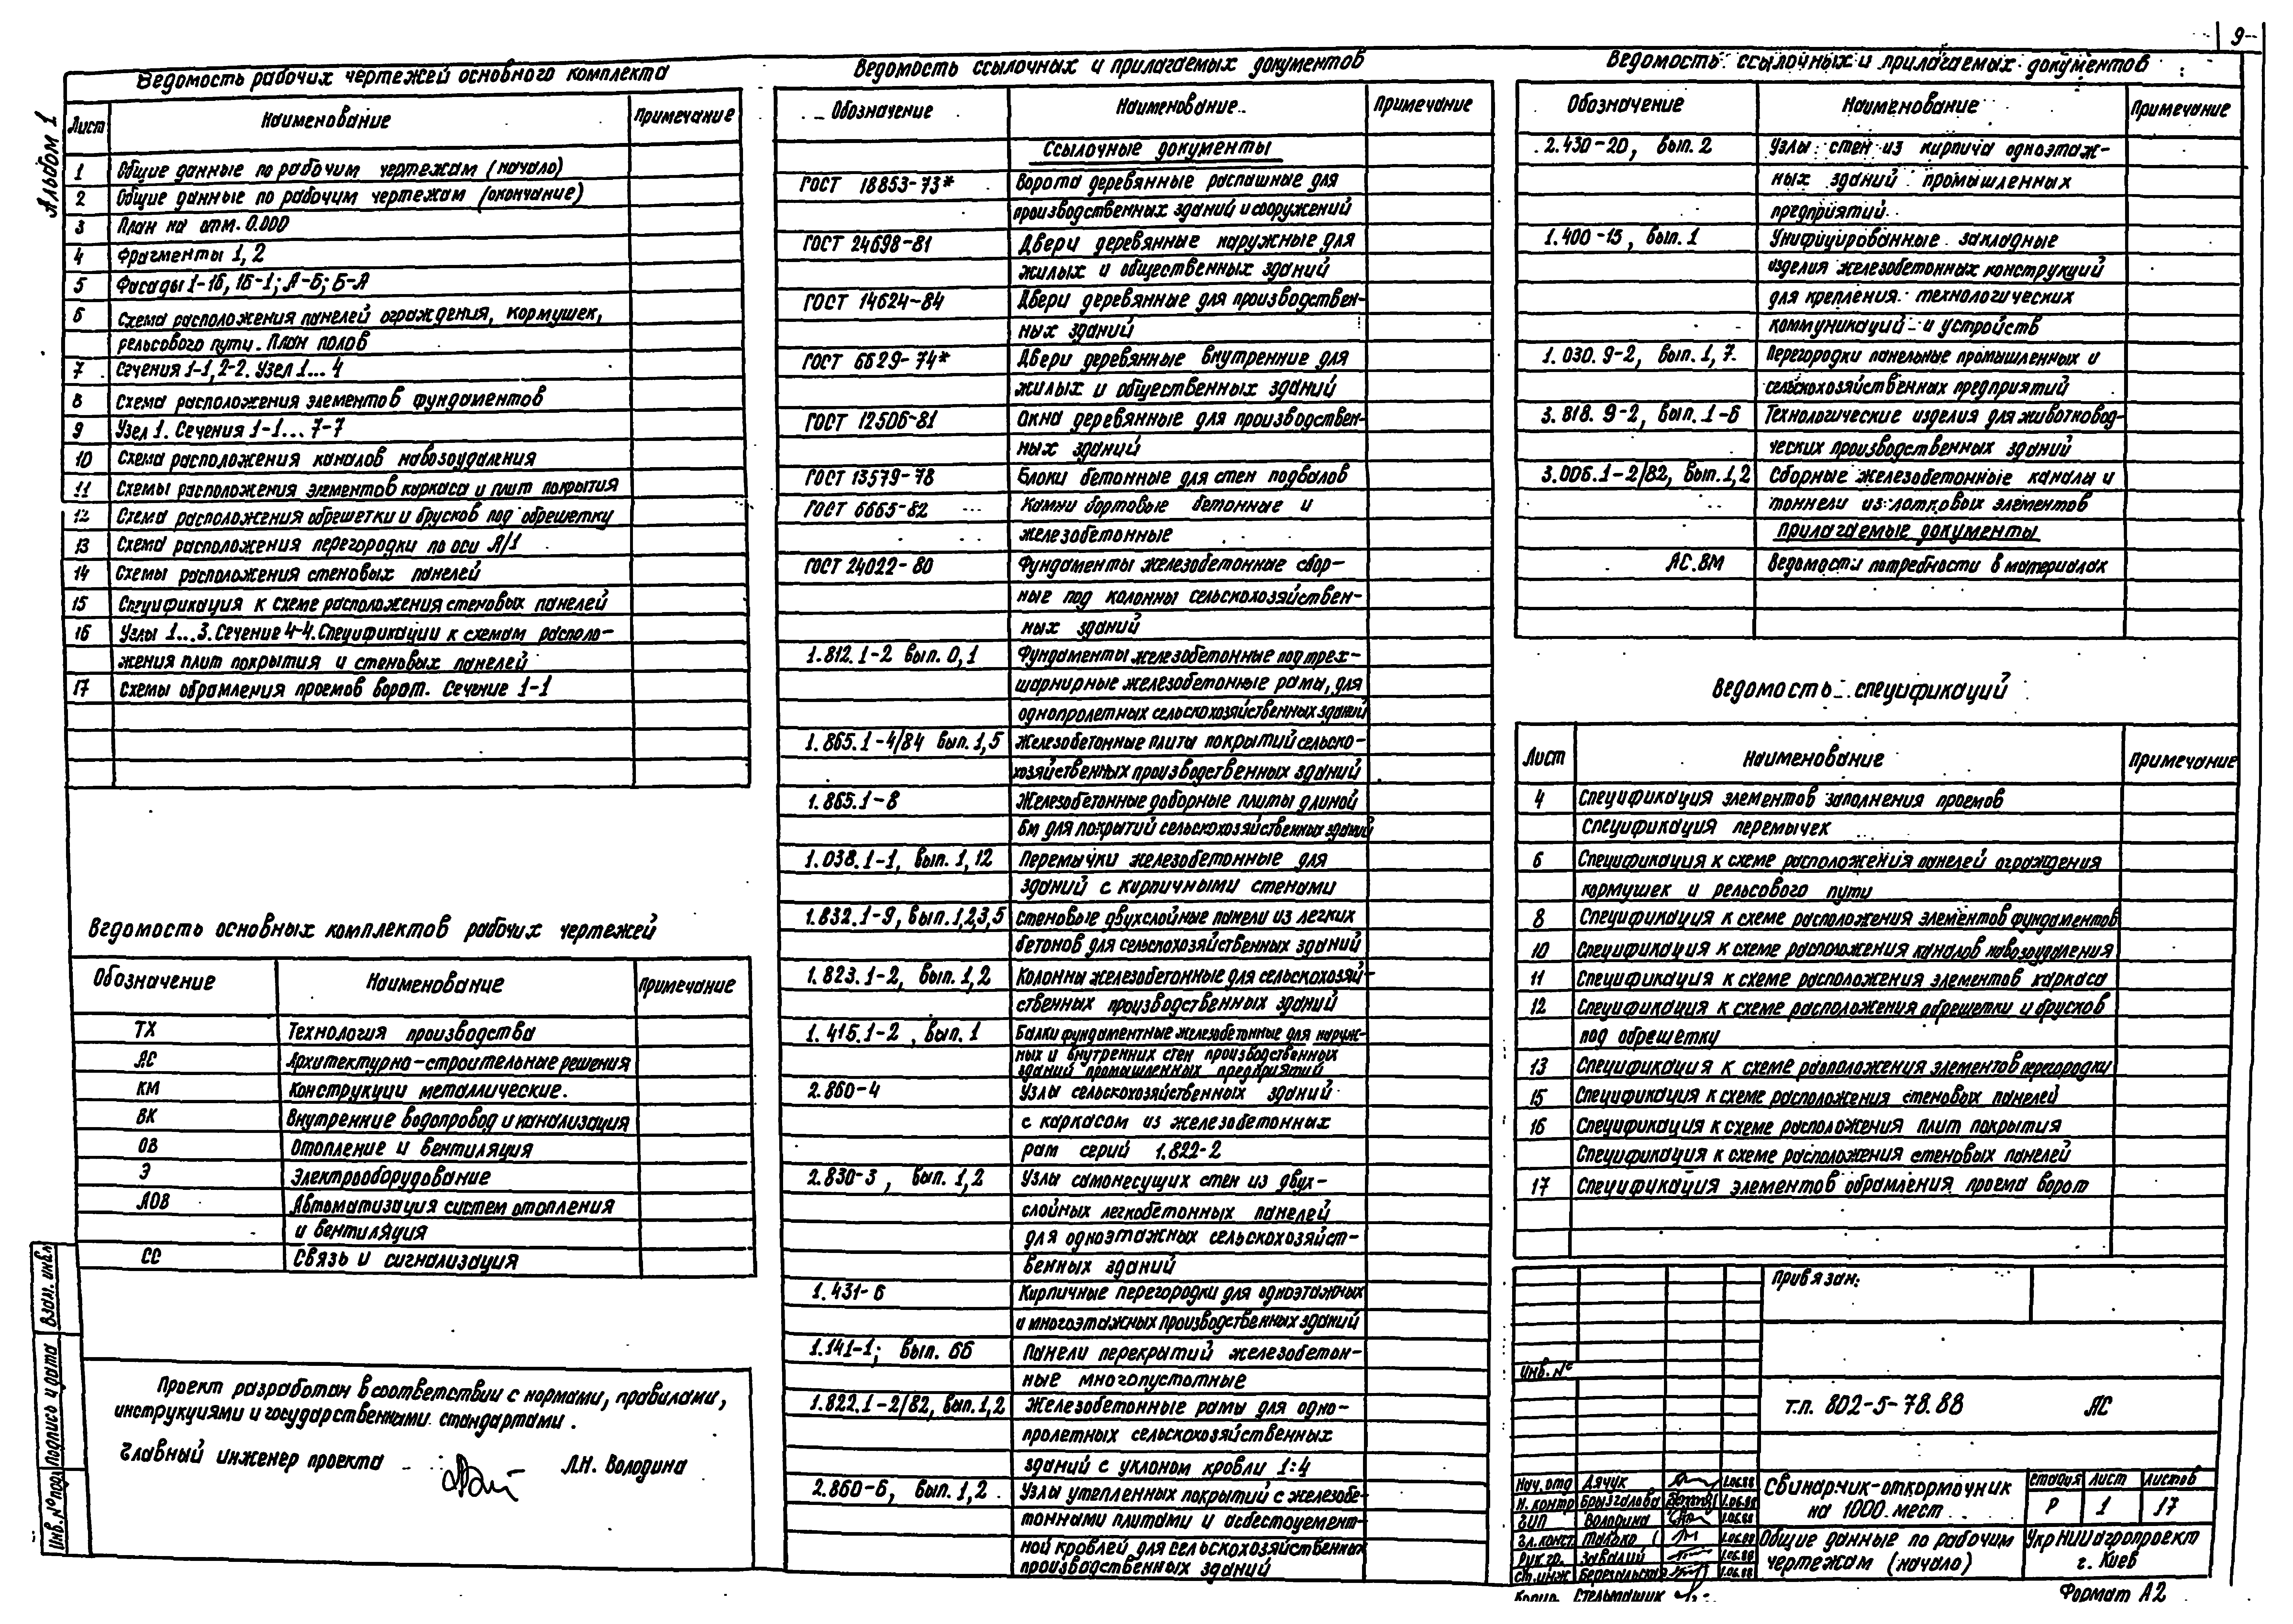 9
Альбом 1
Ведомость рабочих чертежей основного комплекта
Лист Наименование Примечание
1 Общие данные по рабочим чертежам (начало)
2 Общие данные по рабочим чертежам (окончание)
3 План на отм. 0.000
4 Фрагменты 1, 2
5 Фасады 1-16, 16-1; А-Б; Б-А
6 Схема расположения панелей ограждения, кормушек,
рельсового пути. План полов
7 Сечения 1-1, 2-2. Узел 1... 4
8 Схема расположения элементов фундаментов
9 Узел 1. Сечения 1-1... 7-7
10 Схема расположения каналов навозоудаления
11 Схемы расположения элементов каркаса и плит покрытия
12 Схема расположения обрешетки и брусков под обрешетку
13 Схема расположения перегородки по оси А/1
14 Схемы расположения стеновых панелей
15 Спецификация к схеме расположения стеновых панелей
16 Узлы 1...3. Сечение 4-4. Спецификации к схемам располо-
жения плит покрытия и стеновых панелей
17 Схемы обрамления проемов ворот. Сечение 1-1
Ведомость основных комплектов рабочих чертежей
Обозначение Наименование Примечание
ТХ Технология производства
АС Архитектурно-строительные решения
КМ Конструкции металлические.
ВК Внутренние водопровод и канализация
ОВ Отопление и вентиляция
Э Электрооборудование
АОВ Автоматизация систем отопления
и вентиляция
СС Связь и сигнализация
Проект разработан в соответствии с нормами, правилами,
инструкциями и государственными стандартами.
Главный инженер проекта Л.Н. Володина
Взам. инв.№
Подпись и дата
Инв. № подл
Ведомость ссылочных и прилагаемых документов
Обозначение Наименование Примечание
Ссылочные документы
ГОСТ 18853-73* Ворота деревянные распашные для
производственных зданий и сооружений
ГОСТ 24698-81 Двери деревянные наружные для
жилых и общественных зданий
ГОСТ 14624-84 Двери деревянные для производствен-
ных зданий
ГОСТ 6629-74* Двери деревянные внутренние для
жилых и общественных зданий
ГОСТ 12506-81 Окна деревянные для производствен-
ных зданий
ГОСТ 13579-78 Блоки бетонные для стен подвалов
ГОСТ 6665-82 Камни бортовые бетонные и
железобетонные
ГОСТ 24022-80 Фундаменты железобетонные сбор-
ные под колонны сельскохозяйствен-
ных зданий
1.812.1-2 вып. 0,1 Фундаменты железобетонные под трех-
шарнирные железобетонные рамы, для
однопролетных сельскохозяйственных зданий
1.865.1-4/84 вып. 1,5 Железобетонные плиты покрытий сельско-
хозяйственных производственных зданий
1.865.1-8 Железобетонные доборные плиты длиной
6м для покрытий сельскохозяйственных зданий
1.038.1-1, вып. 1,12 Перемычки железобетонные для
зданий с кирпичными стенами
1.832.1-9, вып.1,2,3,5 Стеновые двухслойные панели из легких
бетонов для сельскохозяйственных зданий
1.823.1-2, вып. 1,2 Колонны железобетонные для сельскохозяй-
ственных производственных зданий
1.415.1-2, вып. 1 Балки фундаментные железобетонные для наруж-
ных и внутренних стен производственных
зданий промышленных предприятий
2.860-4 Узлы сельскохозяйственных зданий
с каркасом из железобетонных
рам серий 1.822-2
2.830-3, вып. 1,2 Узлы самонесущих стен из двух-
слойных легкобетонных панелей
для одноэтажных сельскохозяйст-
венных зданий
1.431-6 Кирпичные перегородки для одноэтажных
и многоэтажных производственных зданий
1.141-1; вып. 66 Панели перекрытий железобетон-
ные многопустотные
1.822.1-2/82, вып.1,2 Железобетонные рамы для одно-
пролетных сельскохозяйственных
зданий с уклоном кровли 1:4
2.860-6, вып. 1,2 Узлы утепленных покрытий с железобе-
тонными плитами и асбестоцемент-
ной кровлей для сельскохозяйственных
производственных зданий
Ведомость ссылочных и прилагаемых документов
Обозначение Наименование Примечание
2.430-20, вып. 2 Узлы стен из кирпича одноэтаж-
ных зданий промышленных
предприятий.
1.400-15, вып. 1 Унифицированные закладные
изделия железобетонных конструкций
для крепления технологических
коммуникаций и устройств
1.030.9-2, вып. 1, 7. Перегородки панельные промышленных и
сельскохозяйственных предприятий
3.818.9-2, вып. 1-6 Технологические изделия для животновод-
ческих производственных зданий
3.006.1-2/82, вып.1,2 Сборные железобетонные каналы и
тоннели из лотковых элементов
Прилагаемые документы
АС.ВМ Ведомости потребности в материалах
Ведомость спецификаций
Лист Наименование Примечание
4 Спецификация элементов заполнения проемов
Спецификация перемычек
6 Спецификация к схеме расположения панелей ограждения
кормушек и рельсового пути
8 Спецификация к схеме расположения элементов фундаментов
10 Спецификация к схеме расположения каналов навозоудаления
11 Спецификация к схеме расположения элементов каркаса
12 Спецификация к схеме расположения обрешетки и брусков
под обрешетку
13 Спецификация к схеме расположения элементов перегородки
15 Спецификация к схеме расположения стеновых панелей
16 Спецификация к схеме расположения плит покрытия
Спецификация к схеме расположения стеновых панелей
17 Спецификация элементов обрамления проема ворот
Привязан:
Инв. №
Т.п. 802-5-78.88 АС
Нач. отд Дячук 1.06.88
Н. контр Брызгалова 1.06.88
ГИП Володина 1.06.88
Гл. конст. 1.06.88
Рук. гр. Завалий 1.06.88
Ст. инж 1.06.88
Свинарник-откормочник
на 1000 мест
Стадия Лист Листов
Р 1 17
Общие данные по рабочим
чертежам (начало)
УкрНИИагропроект
г. Киев
Копир. Стельмащик
Формат А2